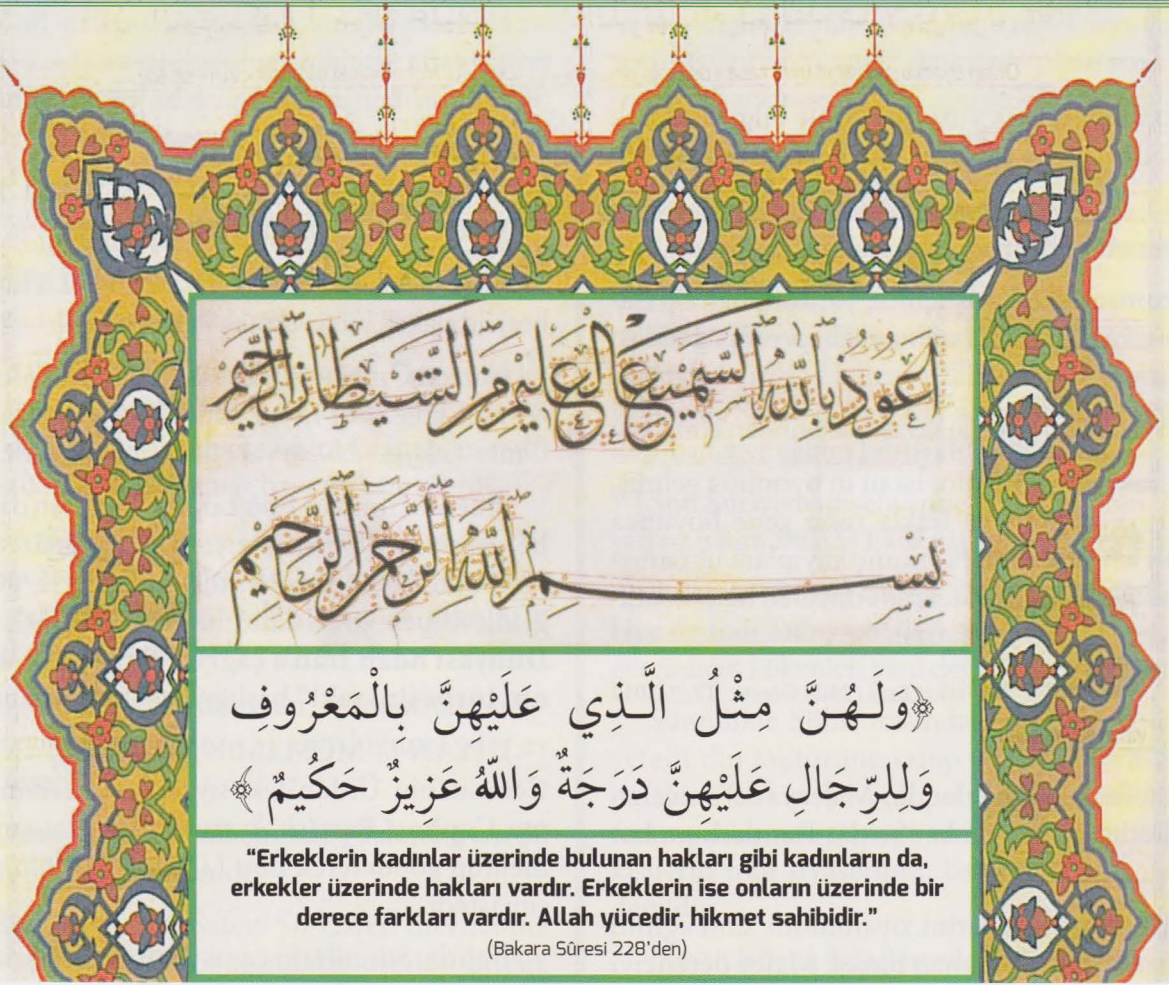 اعوذ بالله السميع العليم من الشيطان الرجيم
بسم الله الرحمن الرحيم
﴿وَلَهُنَّ مِثْلُ الَّذِي عَلَيْهِنَّ بِالْمَعْرُوفِ
وَلِلرِّجَالِ عَلَيْهِنَّ دَرَجَةٌ وَاللّٰهُ عَزِيزٌ حَكُيمٌ﴾
“Erkeklerin kadınlar üzerinde bulunan hakları gibi kadınların da,
erkekler üzerinde hakları vardır. Erkeklerin ise onların üzerinde bir
derece farkları vardır. Allah yücedir, hikmet sahibidir.”
(Bakara Sûresi 228’den)